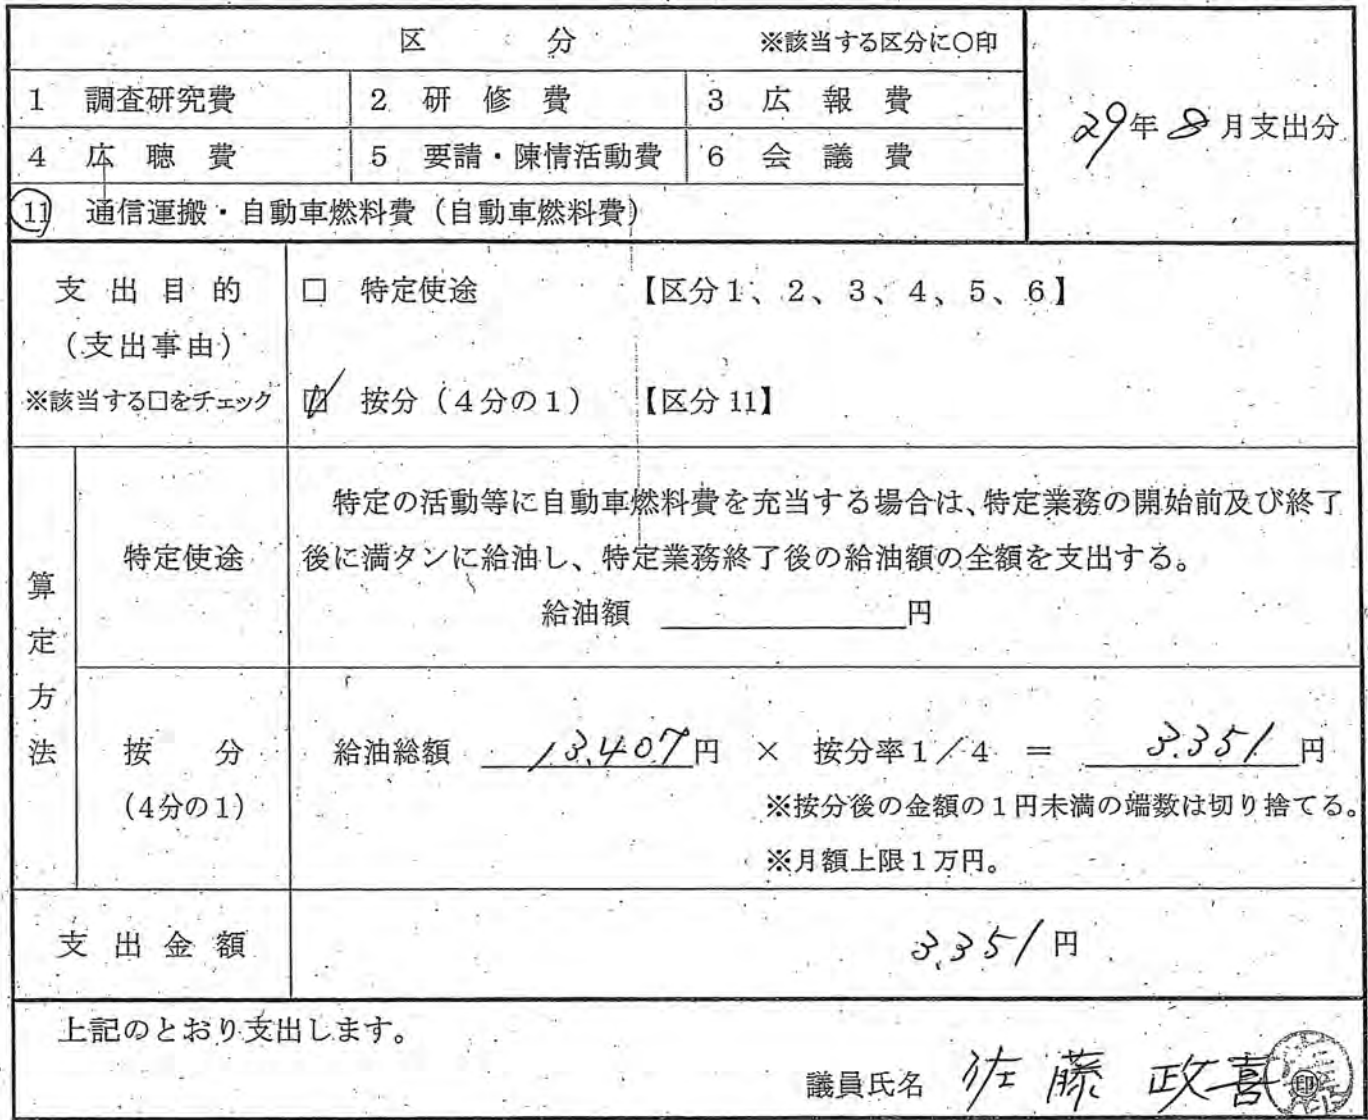 区 分 ※該当する区分に○印
1 調査研究費 2 研修費 3 広報費
29年8月支出分
4 広聴費 5 要請・陳情活動費 6 会議費
11 通信運搬・自動車燃料費(自動車燃料費)
支出目的 □ 特定使途 【区分1、2、3、4、5、6】
(支出事由)
※該当する□をチェック ☑ 按分(4分の1) 【区分11】
算定方法
特定使途
特定の活動等に自動車燃料費を充当する場合は、特定業務の開始前及び終了
後に満タンに給油し、特定業務終了後の給油額の全額を支出する。
給油額 円
按分 給油総額 13,407円 × 按分率1/4 = 3,351円
(4分の1) ※按分後の金額の1円未満の端数は切り捨てる。
※月額上限1万円。
支出金額 3,351円
上記のとおり支出します。
議員氏名 佐藤 政喜 印